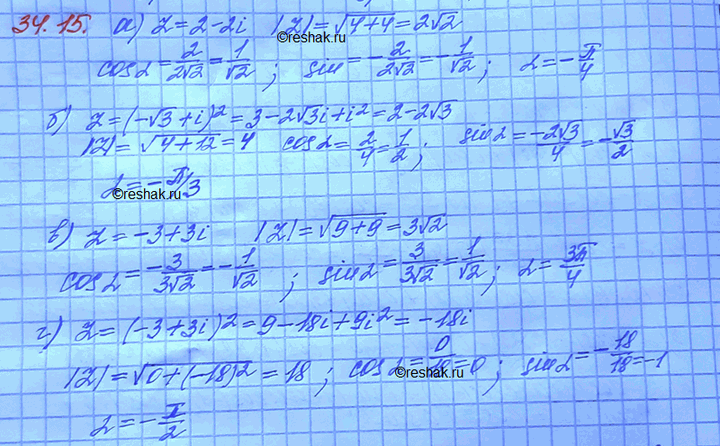 34.15. а) z = 2-2i |z| = √(4+4) = 2√2
©reshak.ru
cos α = 2/(2√2) = 1/√2 ; sin = -2/(2√2) = -1/√2 ; α = -π/4
б) z = (-√3 + i)² = 3 - 2√3i + i² = 2 - 2√3
|z| = √(4+12) = 4 cos α = 2/4 = 1/2 ; sin α = -2√3/4 = -√3/2
α = -π/3
©reshak.ru
в) z = -3+3i |z| = √(9+9) = 3√2
cos α = -3/(3√2) = -1/√2 ; sin α = 3/(3√2) = 1/√2 ; α = 3π/4
г) z = (-3+3i)² = 9 - 18i + 9i² = -18i
|z| = √(0+(-18)²) = 18 ; cos α = 0/18 = 0 ; sin α = -18/18 = -1
©reshak.ru
α = -π/2